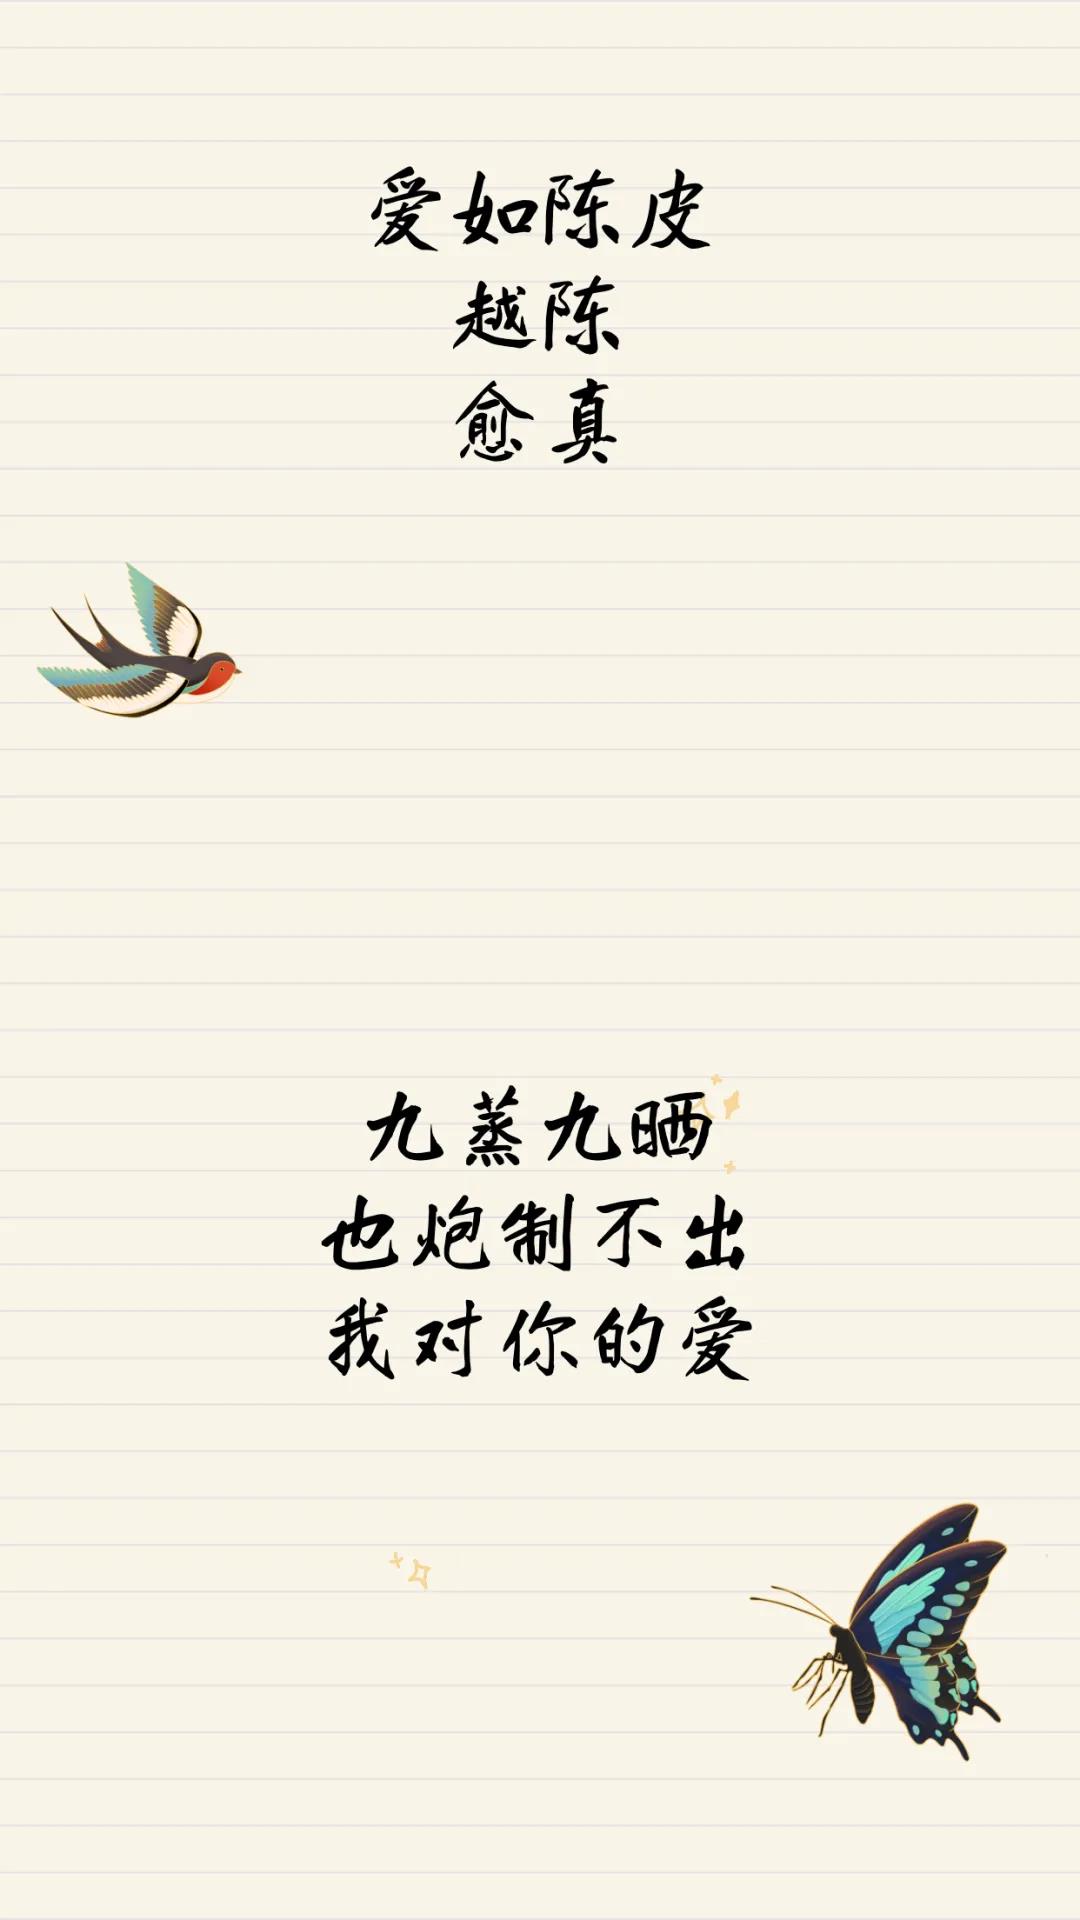 爱如陈皮
越陈
愈真
九蒸九晒
也炮制不出
我对你的爱